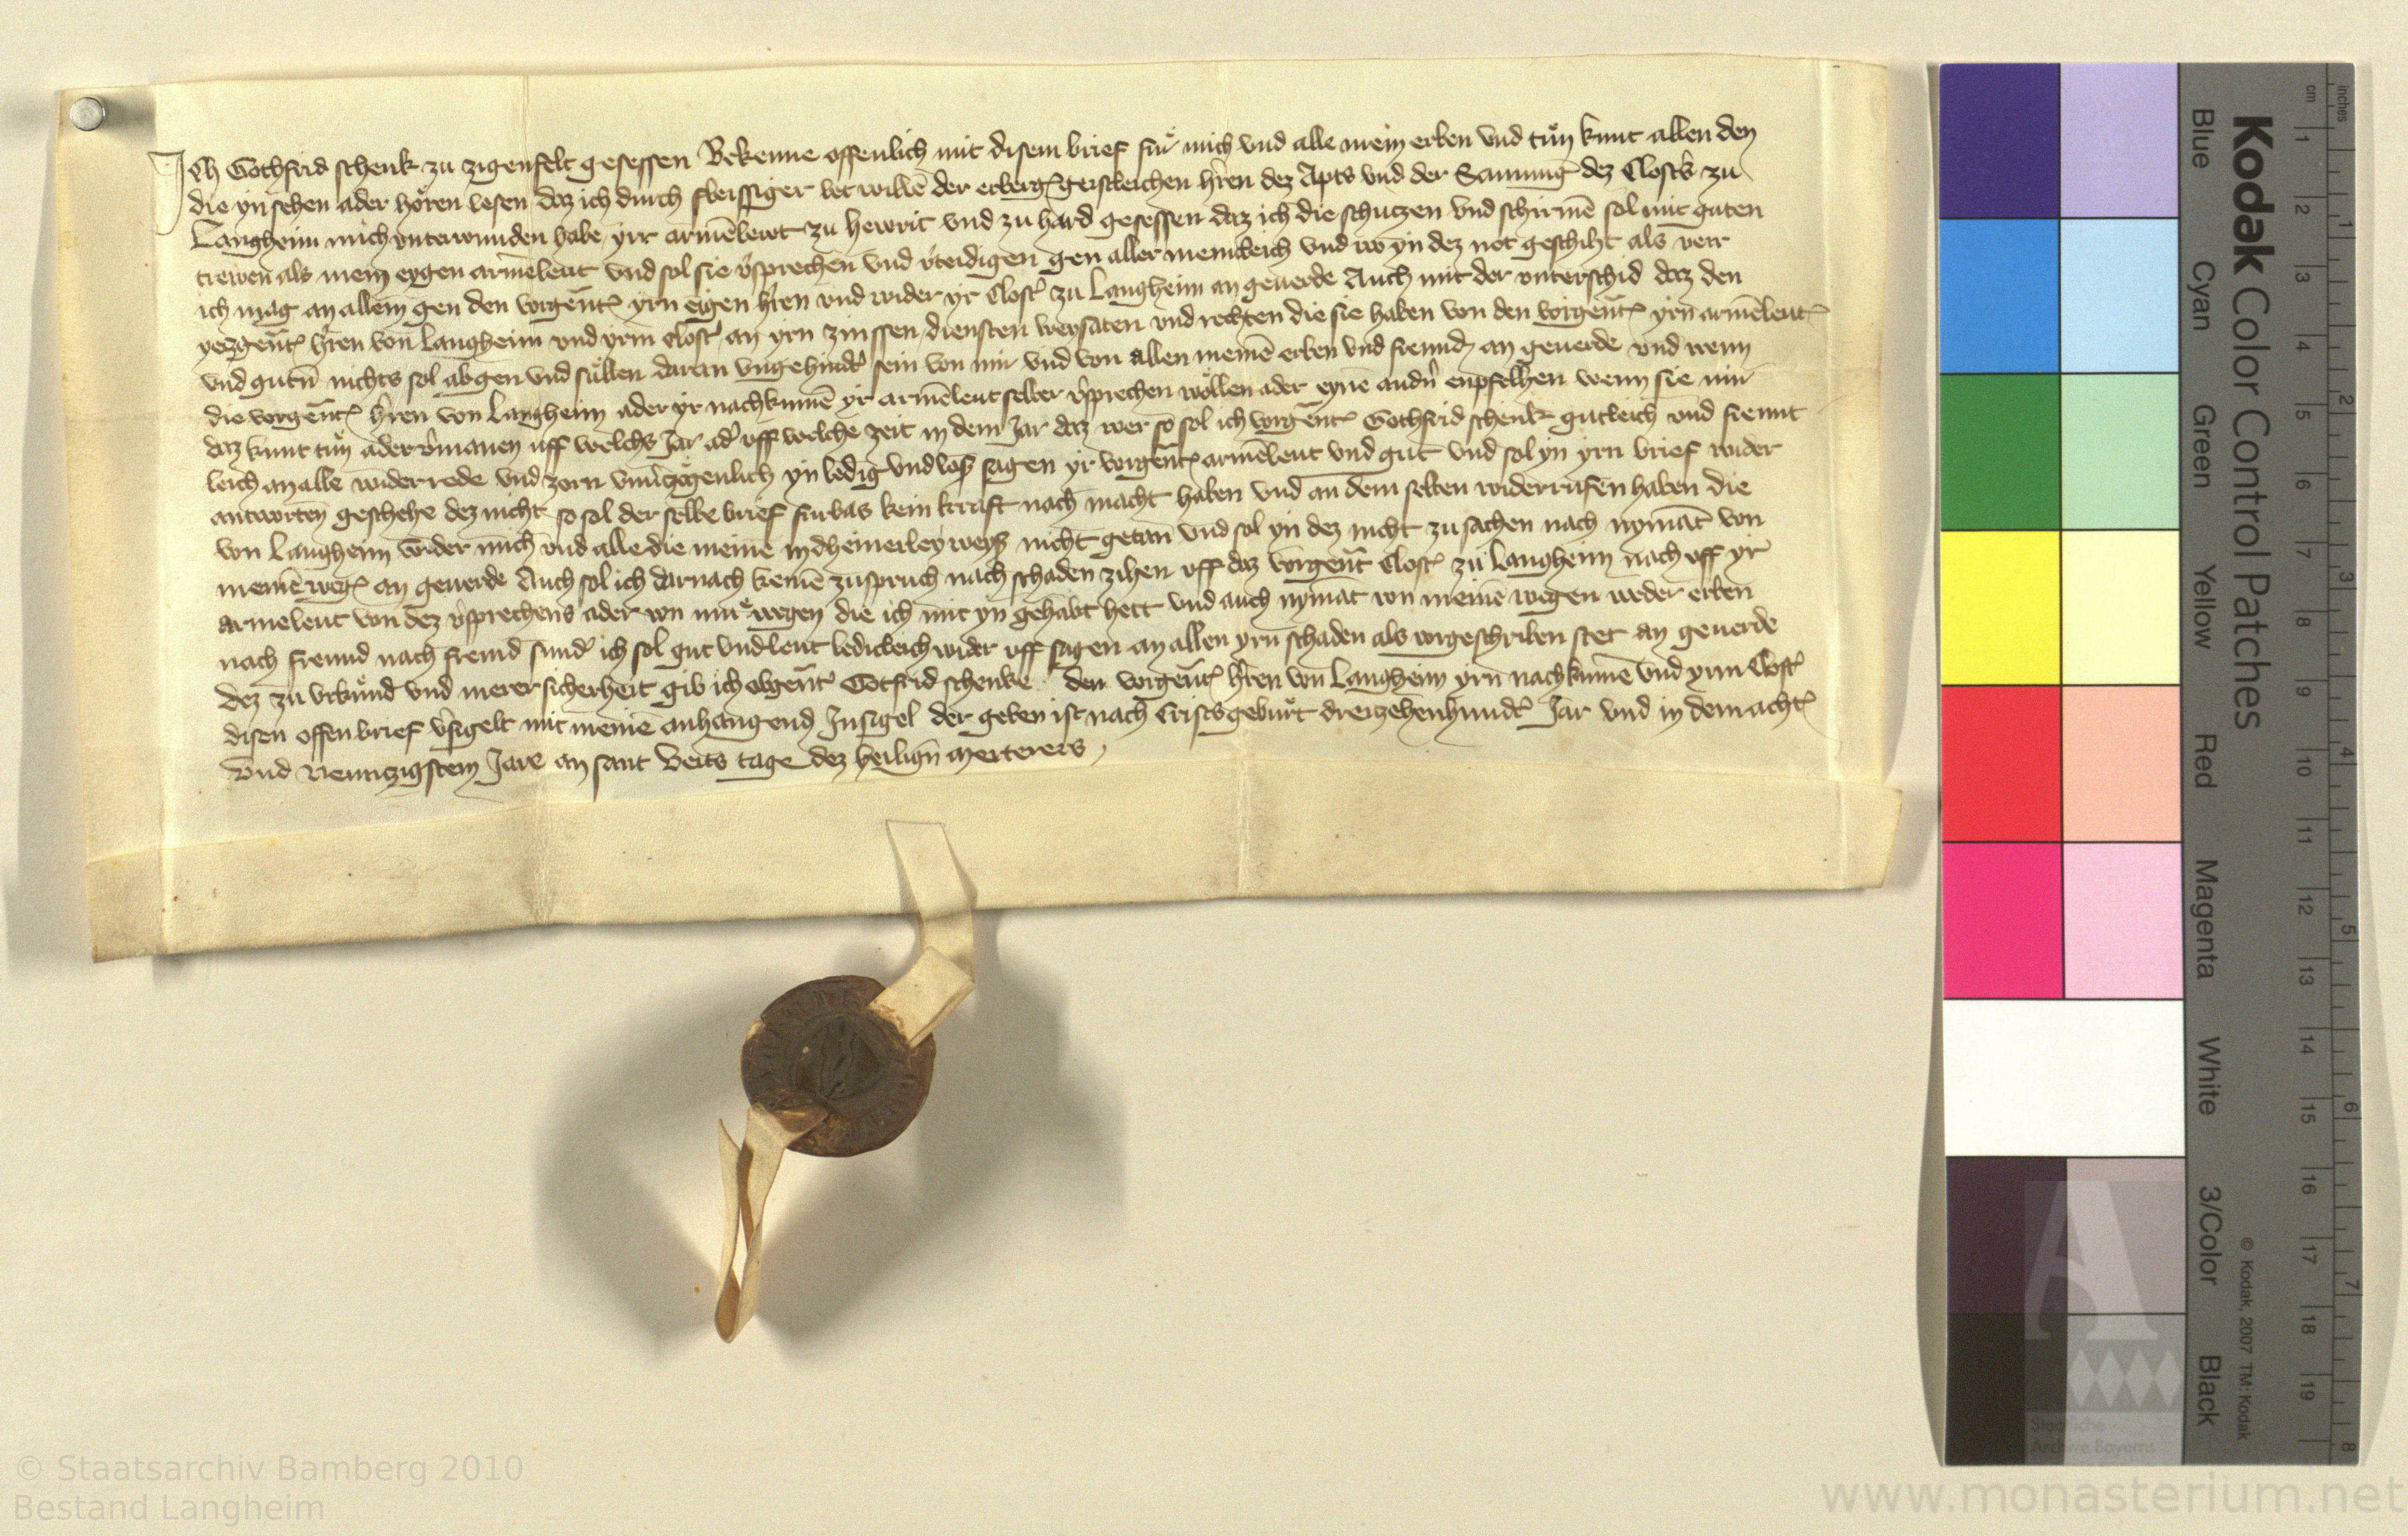 Ich Gothfrid schenk zu zigenfelt gesessen Bekenne offenlich mit disem brief für mich vnd alle mein erben vnd tun kunt allen den
die yn sehen ader hören lesen daz ich durch fleissiger bet willē der erberg geistleichen hren dez Apts vnd der Samnūg dez Closts zu
Langheim mich vnterwunden habe yrr armēlewt zu hewrit vnd zu hard gesessen daz ich die schutzen vnd schirmē sol mit guten
trewen als mein eygen armēleut vnd sol sie vsprechen vnd vteidigen gen aller menicleich vnd wo yn dez not geschiht als verr
ich mag an allein gen den vorgent yrn eigen hren vnd wider yr Clost zu Langheim an geuerde Auch mit der vnterschid daz den
yezgent hren von Langheim vnd yrm Clost an yrn zinssen diensten weysaten vnd rechten die sie haben von den vorgent yrn armēleut
vnd gutn nichts sol abgen vnd süllen daran vngehindt sein von mir vnd von allen meinē erben vnd freund an geuerde vnd wenn
die vorgent hren von Langheim ader yr nachkumē yr armēleut selber vsprechen wöllen ader eynē andn enpfelhen wenn sie mir
daz kunt tun ader vmanen uff welchs Jar ad uff welche zeit in dem Jar daz wer so sol ich vorgent Gothfrid schenk gutleich vnd freunt
leich an alle widerrede vnd zorn vnuzogenlich yn ledig vnd los sagen yr vorgent armēleut vnd gut vnd sol yn yrn brief wider
antworten geschehe dez nicht so sol der selbe brief furbas kein kraft nach macht haben vnd an dem selben widerrufen haben die
von Langheim wider mich vnd alle die meinē in dheinerley weys nicht getan vnd sol yn dez nicht zu sachen nach nymāt von
meinē weg an geuerde Auch sol ich darnach keinē zuspruch nach schaden zihen uff daz vorgent Clost zu Langheim nach uff yr
armeleut von dez vsprechens ader von mir wegen die ich mit yn gehabt hett vnd auch nymāt von meinē wegen weder erben
nach freund nach fremd sund ich sol gut vnd leut ledicleich wider uff sagen an allen yrn schaden als vorgeschriben stet an geuerde
Dez zu vrkund vnd merer sicherheit gib ich obgent Gotfrid schenke den vorgent hren von Langheim yrn nachkumē vnd yrm Clost
disen offen brief vsigelt mit meinē anhangend Insigel der geben ist nach Cristsgeburt dreizehenhundt Jar vnd in dem acht
vnd Neuntzigstem Jare an sant Veits tage dez heilign merterers
Kodak Color Control Patches
Blue Cyan Green Yellow Red Magenta White 3/Color Black
© Kodak, 2007 TM: Kodak
inches 1 2 3 4 5 6 7 8
cm 1 2 3 4 5 6 7 8 9 10 11 12 13 14 15 16 17 18 19
Staatliche
Archive Bayerns
© Staatsarchiv Bamberg 2010
Bestand Langheim
www.monasterium.net